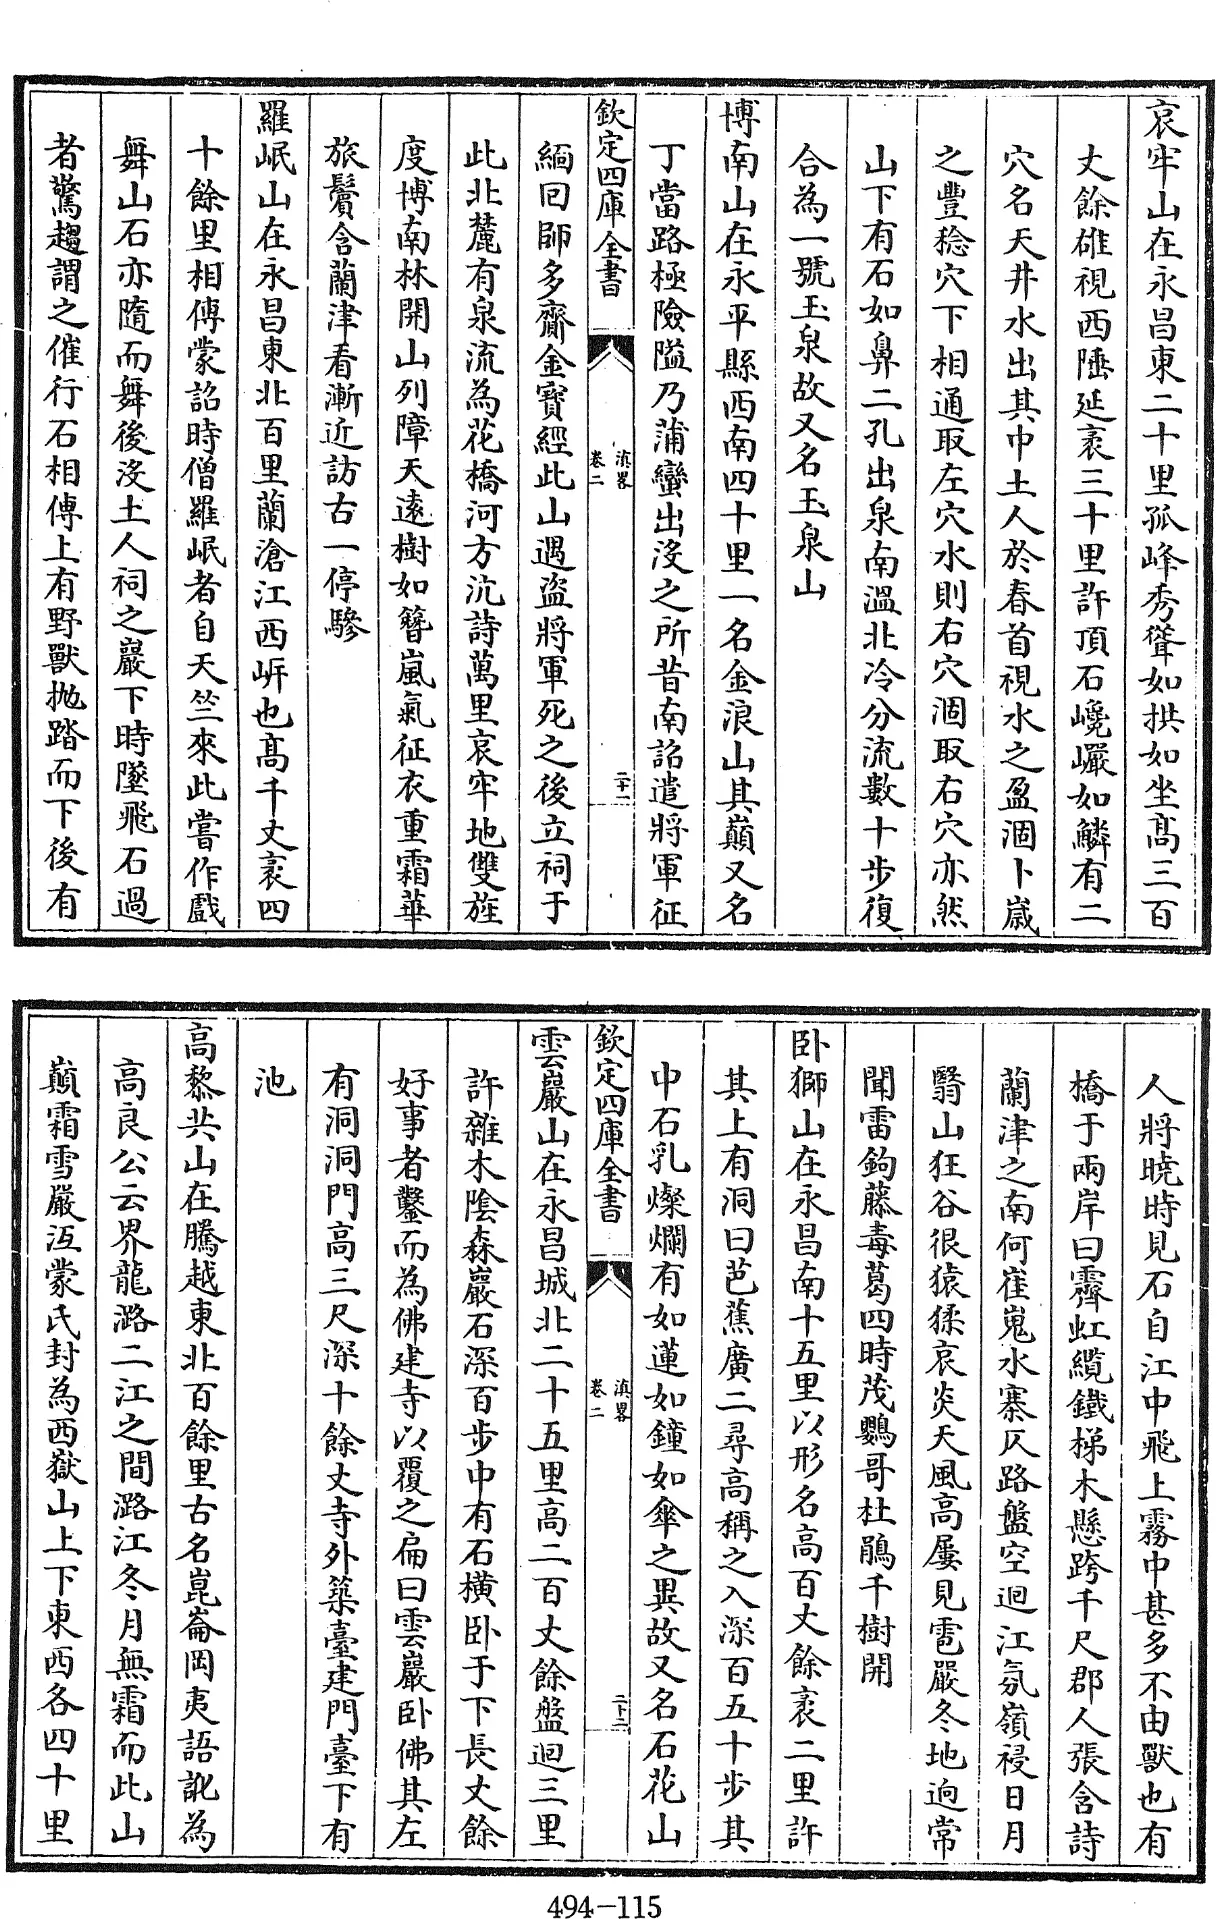 哀牢山在永昌東二十里孤峰秀聳如拱如坐髙三百
丈餘雄視西陲延袤三十里許頂石巉巖如鱗有二
穴名天井水出其中土人於春首視水之盈涸卜嵗
之豐稔穴下相通取左穴水則右穴涸取右穴亦然
山下有石如鼻二孔出泉南溫北冷分流數十步復
合為一號玉泉故又名玉泉山
博南山在永平縣西南四十里一名金浪山其巔又名
丁當路極險隘乃蒲蠻出沒之所昔南詔遣將軍征
欽定四庫全書
滇畧
卷二
二十一
緬回師多齎金寳經此山遇盜將軍死之後立祠于
此北麓有泉流為花橋河方沆詩萬里哀牢地雙旌
度博南林開山列障天逺樹如簪嵐氣征衣重霜華
旅鬢含蘭津看漸近訪古一停驂
羅岷山在永昌東北百里蘭滄江西岍也髙千丈袤四
十餘里相傳蒙詔時僧羅岷者自天竺來此嘗作戲
舞山石亦隨而舞後沒土人祠之巖下時墜飛石過
者驚趨謂之催行石相傳上有野獸抛踏而下後有
人將曉時見石自江中飛上霧中甚多不由獸也有
橋于兩岸曰霽虹纜鐵梯木懸跨千尺郡人張含詩
蘭津之南何崔嵬水寨仄路盤空迴江氛嶺祲日月
翳山狂谷很猿猱哀炎天風高屢見雹嚴冬地逈常
聞雷鉤藤毒葛四時茂鸚哥杜鵑千樹開
卧獅山在永昌南十五里以形名高百丈餘袤二里許
其上有洞曰芭蕉廣二尋高稱之入深百五十步其
中石乳燦爛有如蓮如鐘如傘之異故又名石花山
欽定四庫全書
滇畧
卷二
二十二
雲巖山在永昌城北二十五里高二百丈餘盤迴三里
許雜木陰森巖石深百步中有石橫卧于下長丈餘
好事者鑿而為佛建寺以覆之扁曰雲巖卧佛其左
有洞洞門高三尺深十餘丈寺外築臺建門臺下有
池
高黎共山在騰越東北百餘里古名崑崙岡夷語訛為
高良公云界龍潞二江之間潞江冬月無霜而此山
巔霜雪嚴沍蒙氏封為西嶽山上下東西各四十里
494-115